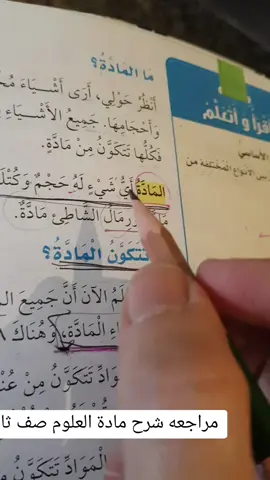 مَا الْمَادَّةُ؟
أَنْظُرُ حَوْلِي، أَرَى أَشْيَاءَ
وَأَحْجَامِهَا. جَمِيعُ الْأَشْيَاءِ
فَكُلُّهَا تَتَكَوَّنُ مِنْ مَادَّةٍ.
الْمَادَّةُ أَيُّ شَيْءٍ لَهُ حَجْمٌ وَكُتْلَ
رِمَالُ الشَّاطِئِ مَادَّةٌ.
تَتَكَوَّنُ الْمَادَّةُ؟
الْآنَ أَنَّ جَمِيعَ
الْمَادَّةِ، وَهُنَاكَ
تَتَكَوَّنُ مِنْ
الْمَوَادِّ تَتَكَوَّنُ
أَقْرَأُ وَ أَتَعَلَّمُ
الأساسي
الأنواع المختلفة من
مراجعه شرح مادة العلوم صف ثا